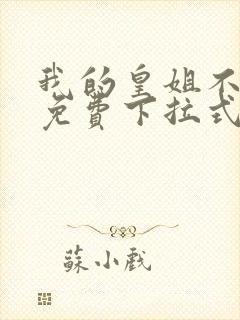 我的皇姐不
免費下拉式
蘇小戲